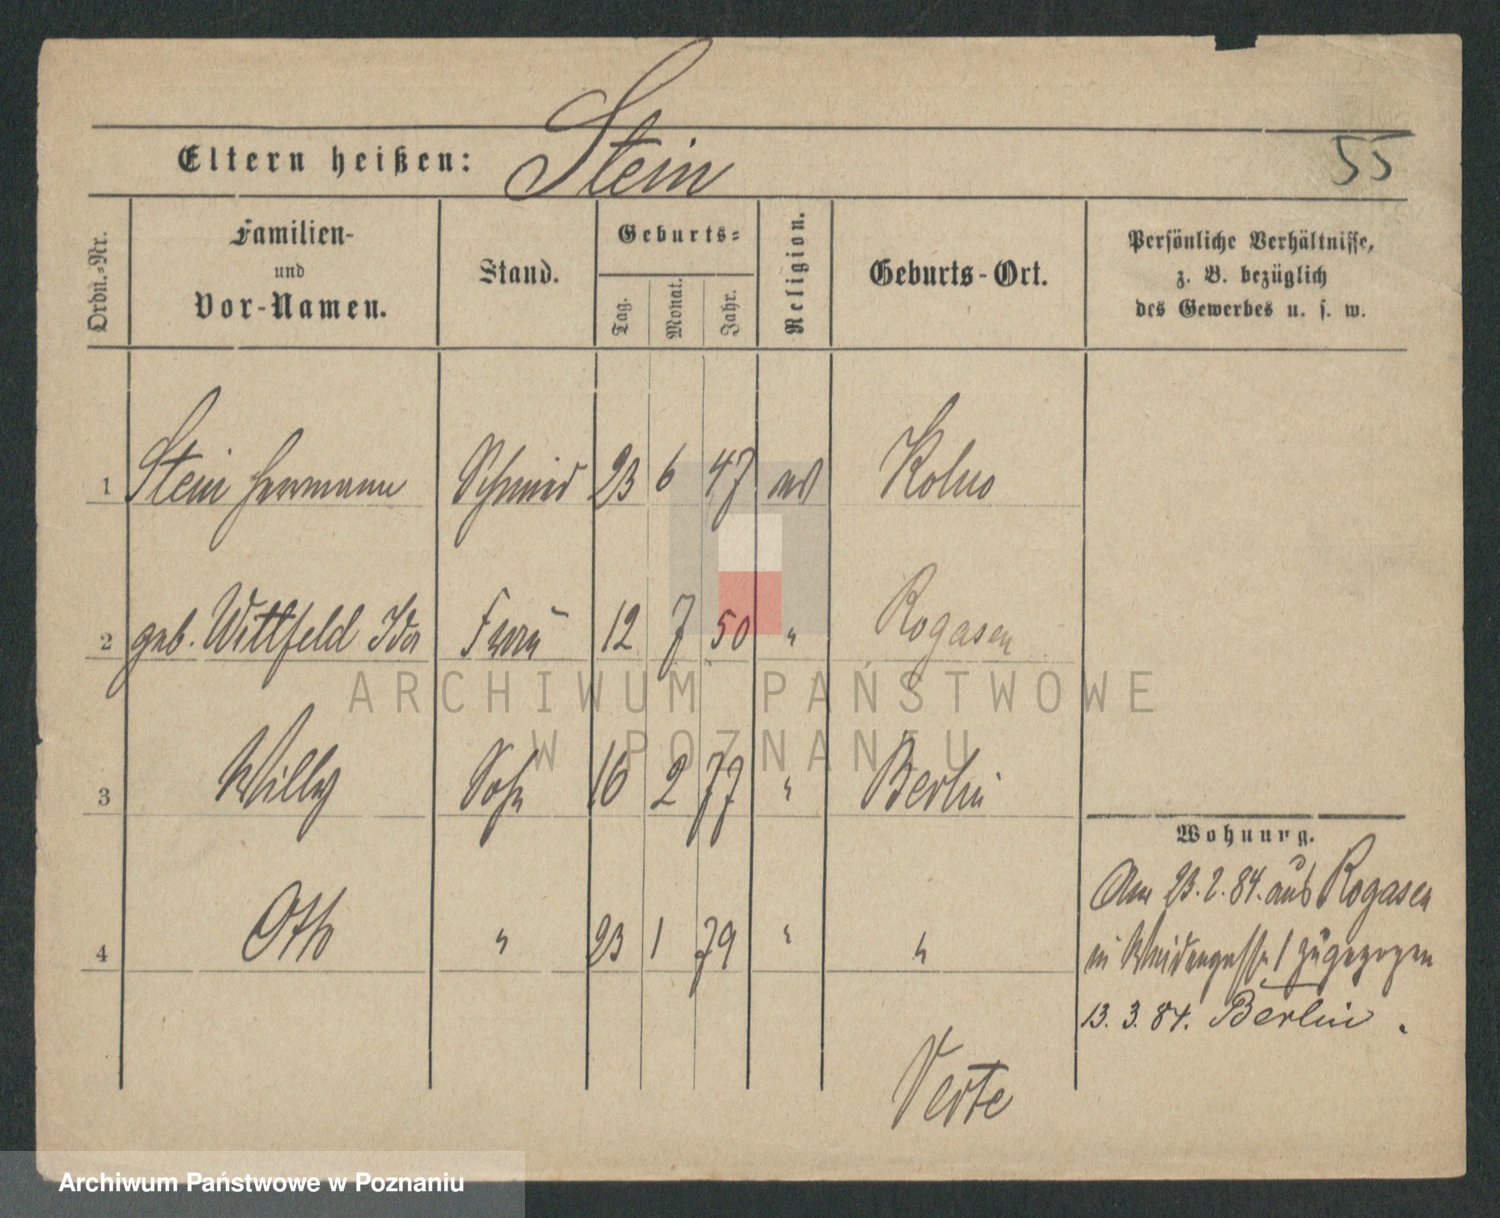 Stein
Eltern heißen:
55
Ordn.-Nr.
Familien-
und
Vor-Namen.
Stand.
Geburts-
Tag.
Monat.
Jahr.
Religion.
Geburts-Ort.
Persönliche Verhältnisse,
z. B. bezüglich
des Gewerbes u. s. w.
1 Stein Hermann Schmied 23 6 47 Kolno
2 geb. Wittfeld Ida Frau 12 7 50 " Rogasen
3 Willy Sohn 16 2 77 " Berlin
4 Otto " 23 1 79 " "
Wohnung.
Am 23. 2. 84. aus Rogasen
in Weidengasse 1 zugezogen
13. 3. 84. Berlin.
Verte
ARCHIWUM PAŃSTWOWE
W POZNANIU
Archiwum Państwowe w Poznaniu